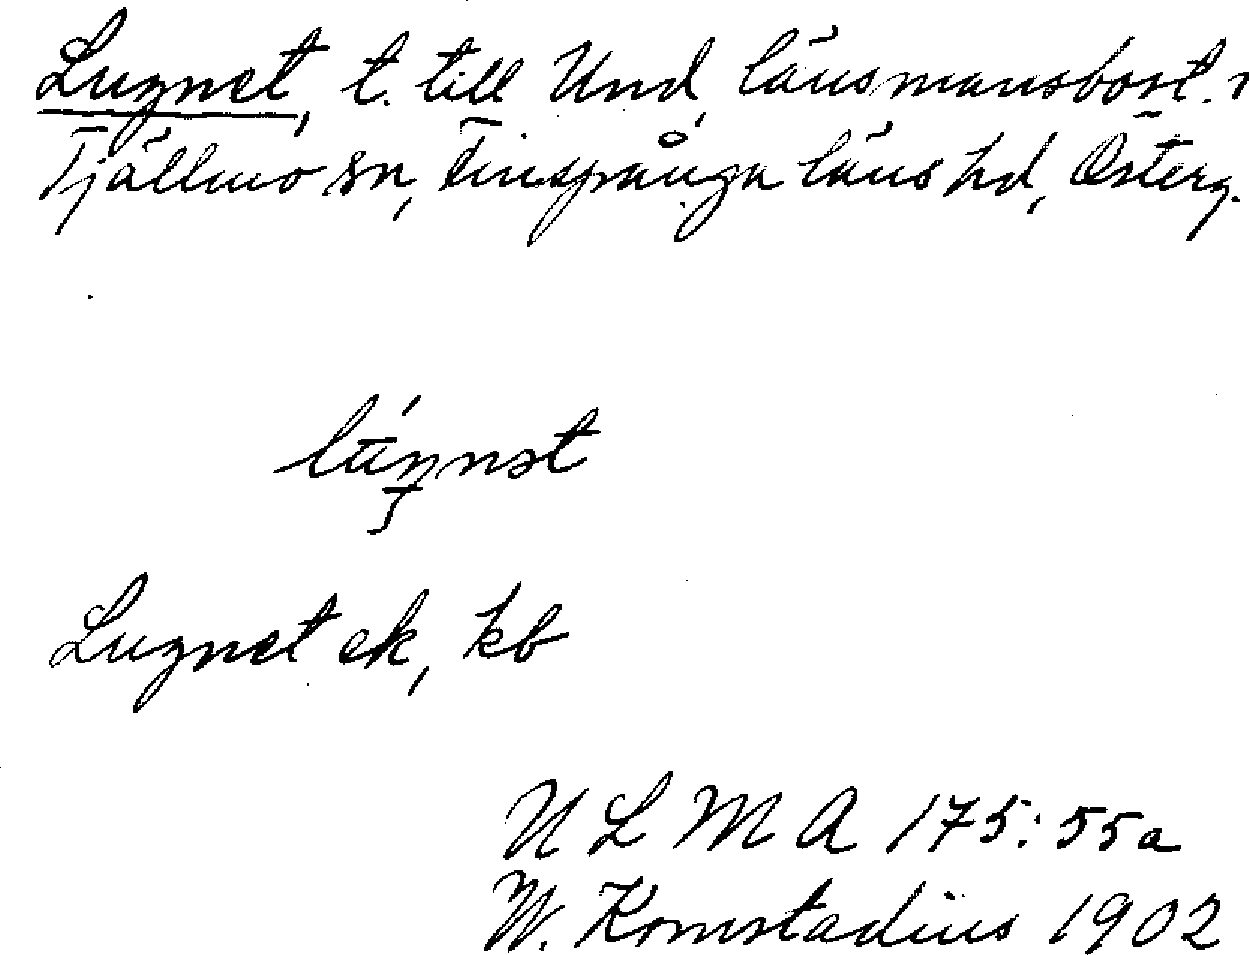 Lugnet, t. till Und, länsmansbost. i
Tjällmo sn, Finspånga läns hd, Österg.
Lugnet ek, kb
ULMA 175:55a
W. Komstadius 1902